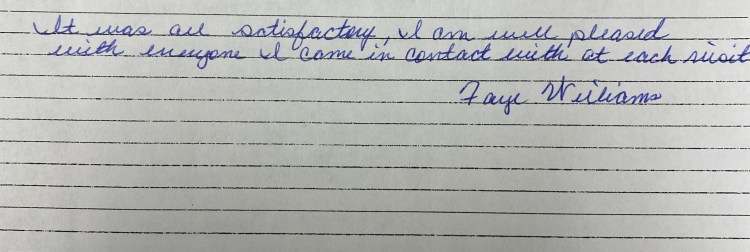 It was all satisfactory, I am well pleased
with everyone I came in contact with at each visit
Faye Williams